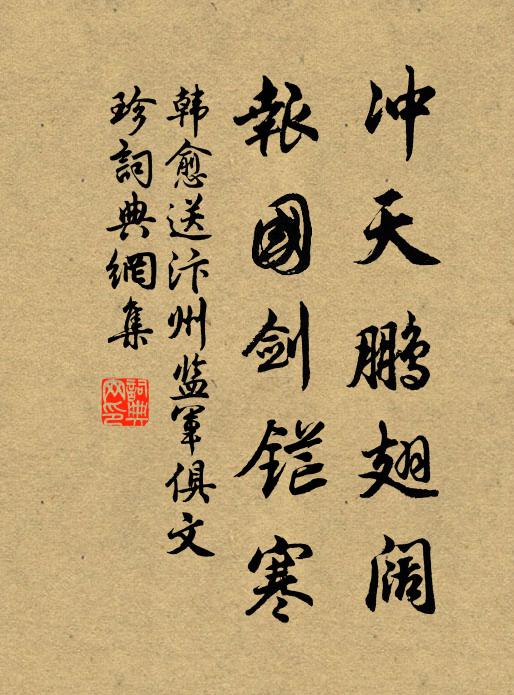 冲天鹏翅阔
報國劍铓寒
韩愈送汴州监軍俱文
珍詞典網集
詞典网印